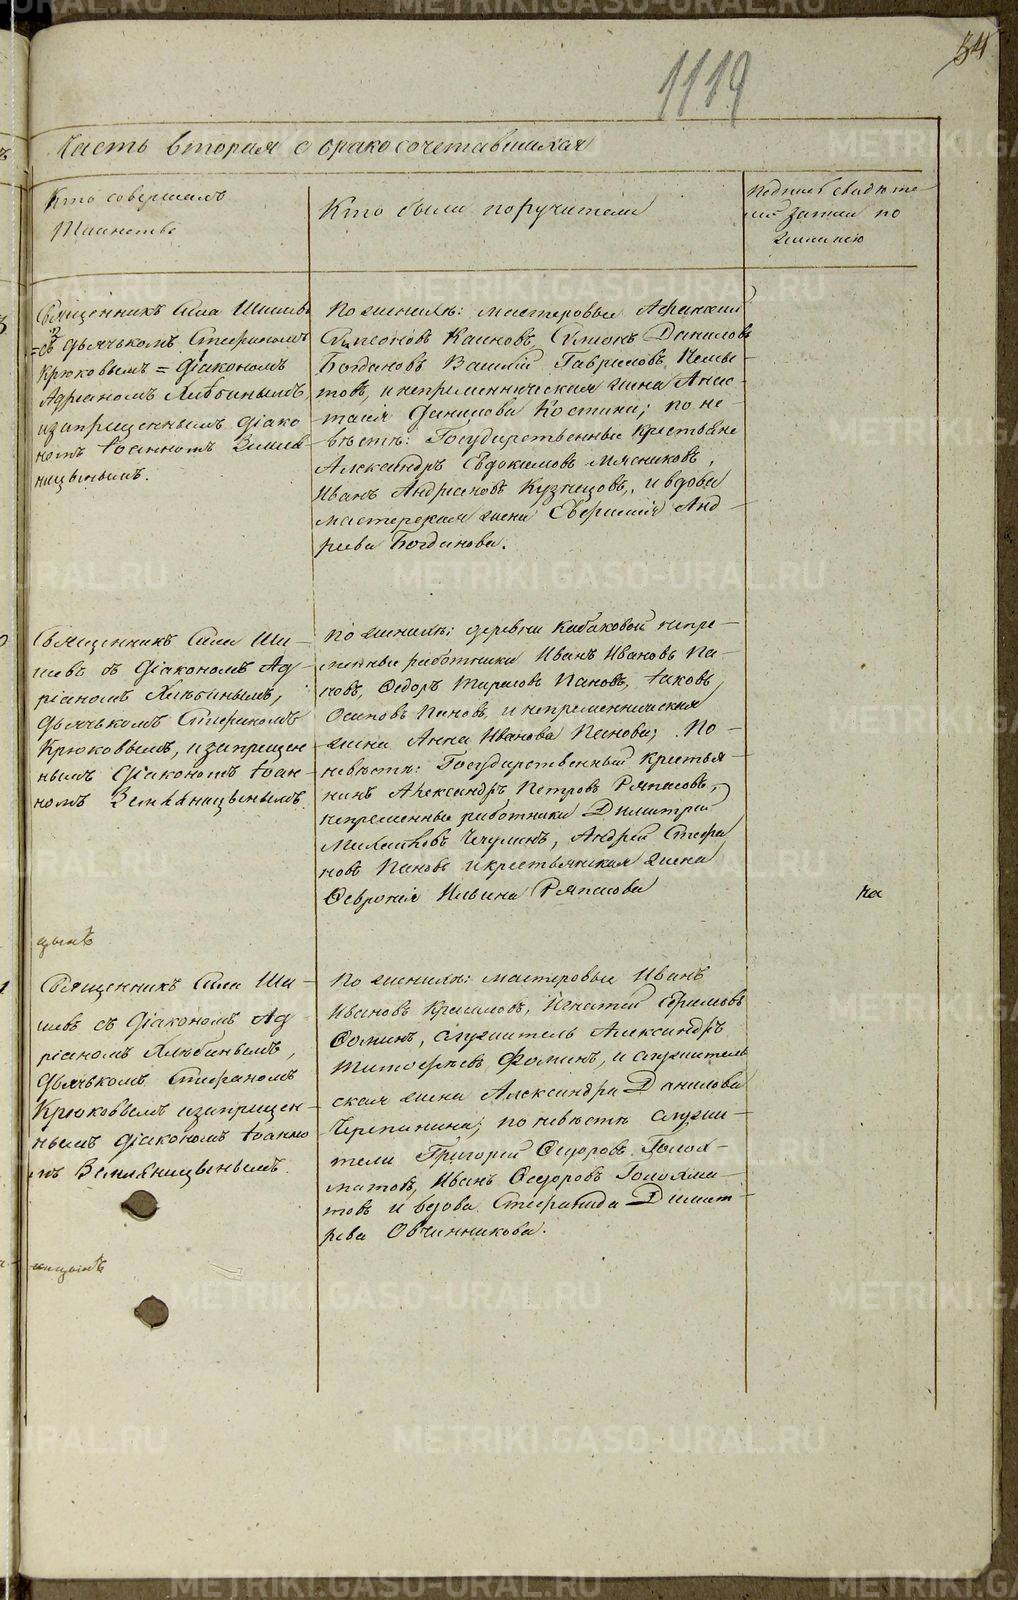 34
1119
Часть вторая о бракосочетавшихся
Кто совершалъ
Таинство
Кто были поручители
Подпись свидѣте
лей записи по
желанію
Священникъ Сила Шишевъ
съ дьячькомъ Стефаномъ
Крюковымъ = діакономъ
Адріаномъ Хлѣбинымъ,
и запрещеннымъ діако
номъ Іоанномъ Земля
ницынымъ.
По женихѣ: мастеровые Афанасій
Симеоновъ Каиновъ, Симеонъ Даниловъ
Богдановъ Василій Гавриловъ
товъ, и непременническая жена Анас-
тасія Данилова Костина; по не-
вѣстѣ: Государственные крестьяне
Александръ Евдокимовъ Мясниковъ,
Иванъ Андреяновъ Кузнецовъ, и вдова
мастерская жена Анд
реева Богданова.
Священникъ Сила Ши-
шевъ съ діакономъ Ад-
ріаномъ Хлѣбинымъ,
дьячькомъ Стефаномъ
Крюковымъ, и запрещен-
нымъ діакономъ Іоан-
номъ Земляницынымъ.
По женихѣ: деревни Кабаковой непре-
менные работники Иванъ Ивановъ Па-
новъ, Ѳедоръ Панов, Іаковъ
Осиповъ Пановъ, и непременническая
жена Анна Иванова Панова; По
невѣстѣ: Государственный крестья-
нинъ Александръ Петровъ Ряпасовъ,
непременные работники Димитрий
Михайловъ Чечулинъ, Андрей Стефа
новъ Пановъ и крестьянская жена
Ѳевронія Ильина Ряпасова
ка
цынъ
Священникъ Сила Ши-
шевъ съ діакономъ Ад-
ріаномъ Хлѣбинымъ,
дьячькомъ Стефаномъ
Крюковымъ и запрещен-
нымъ діакономъ Іоанно
мъ Земляницынымъ.
По женихѣ: мастеровые Иванъ
Ивановъ Красиловъ, Игнатій Ефимовъ
Ѳоминъ, служитель Александръ
Тимоѳеевъ Фоминъ, и служитель
ская жена Александра Данилова
Черепанина; по невѣстѣ служи-
тели Григорій Ѳедоровъ Голох-
матовъ, Иванъ Ѳедоровъ Голохма-
товъ и вдова Стефанида Димит
рева Овчинникова.
ницынъ
METRIKI.GASO-URAL.RU